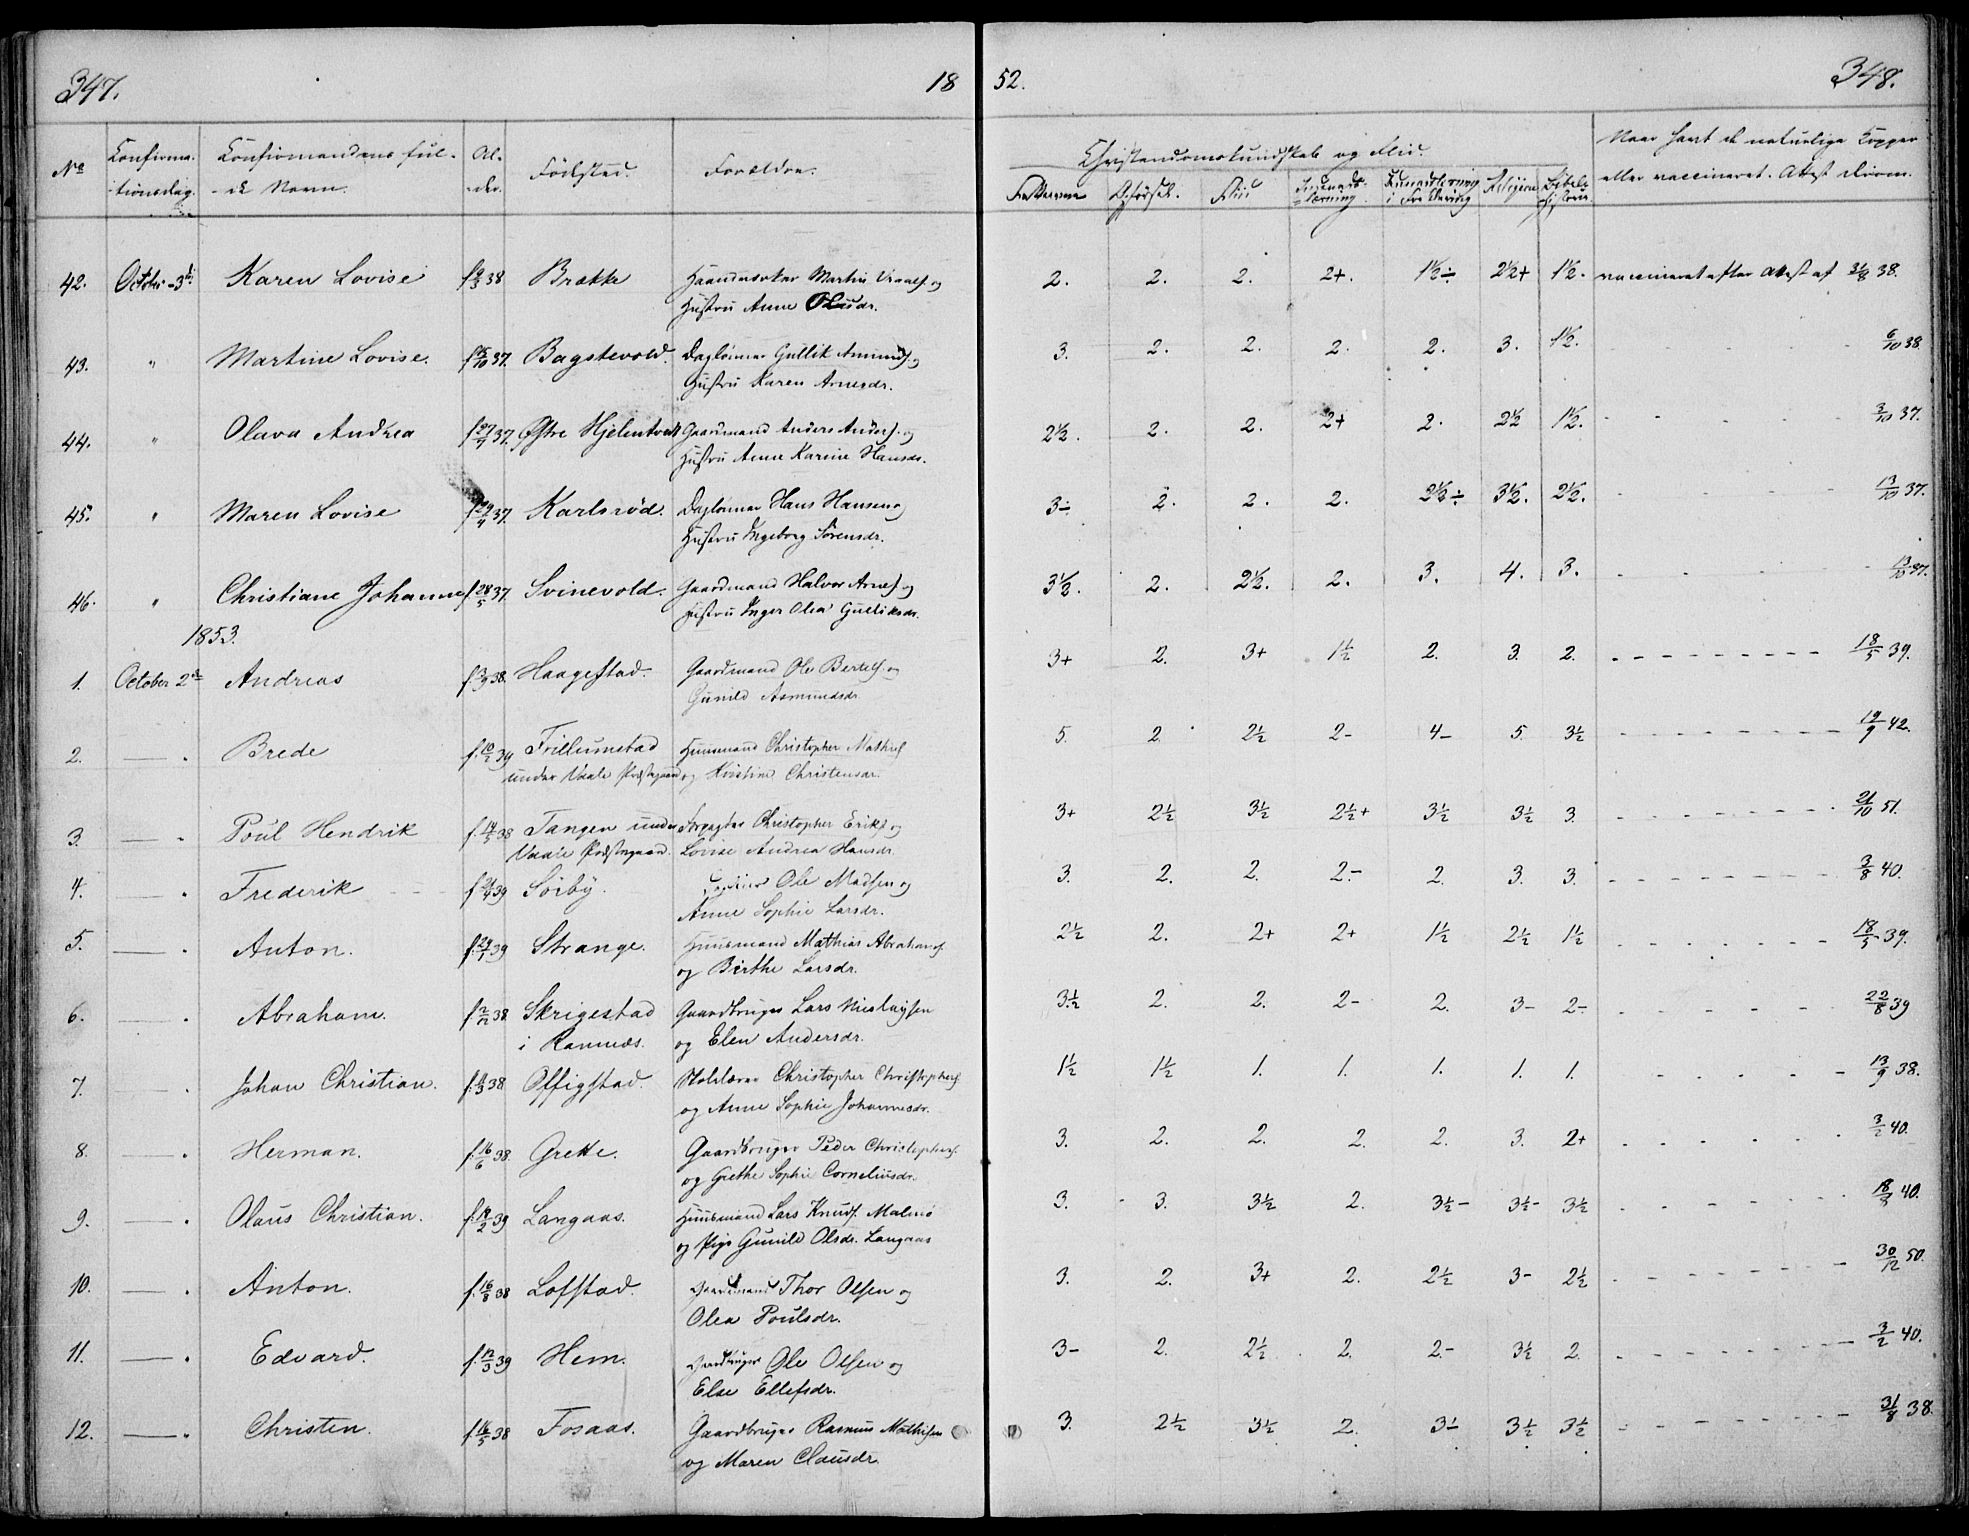 347. 18 52. 348.
No Confirma- Confirmandens ful- Al- Fødested. Forældre. Christendomskundskab og Flid. Naar havt de naturlige Kopper
tionsdag. de Navn. der. Opførsel. Flid Religion Bibel- eller vaccineret. Attest derom.
42. Octobr. 3die Karen Lovise f. 9/3 38 Brække Martin og 2. 2. 2. 2+. 1½÷ 2½+ 1½. vaccineret efter Attest af 31/8 38.
Hustru Anne Olusdr.
43. " Martine Lovise. f. 15/10 37. Bagstevold. Daglønner Gullik Amunds. og 3. 2. 2. 2. 2. 3. 1½. - - - - 6/10 38.
Hustru Karen Arnesdr.
44. " Olava Andrea f. 27/7 37. Østre Hjelmtvedt Gaardmand Anders Anders. og 2½. 2. 2. 2+ 2. 2½ 1½. - - - - 3/10 37.
Hustru Anne Karine Hansdr.
45. " Maren Lovise f. 29/4 37. Karlsröd. Daglønner Hans Hansen og 3÷ 2. 2. 2. 2½÷ 3½. 2½. - - - - 13/10 37.
Hustru Ingeborg Sörensdr.
46. " Christiane Johanne f. 28/5 37 Svinevold. Gaardmand Halvor Arnes. og 3½. 2. 2½. 2. 3. 4. 3. - - - - 13/10 37.
Hustru Inger Olea Gulliksdr.
1853.
1. October 2den Andreas f. 3/9 38. Haagestad. Gaardmand Ole Bertels. og 3+ 2. 3+ 1½ 2. 3. 2. - - - - 18/5 39.
Gunild Asmundsdr.
2. — " Brede f. 10/2 39 Frillumstad Huusmand Christopher Mathis. 5. 2. 2½ 2- 4- 5. 3½ - - - - 19/9 42.
under Vaale Præstegaard og Kristine Christensdr.
3. — " Poul Hendrik f. 14/5 38 Tangen under Forpagter Christopher Eriks. og 3+ 2½ 3½ 2½+ 3½ 3½ 3. - - - - 21/10 51.
Vaale Præstegaard. Lovise Andrea Hansdr.
4. — " Frederik f. 21/4 39 Sörby. Ole Madsen og 3. 2. 2. 2.- 2. 3. 3. 3/8 40.
Anne Sophie Larsdr.
5. — " Anton. f. 29/1 39 Strange. Huusmand Mathias Abrahams. 2½ 2. 2+ 2+ 1½ 2½ 1½ - - - - 18/5 39.
og Birthe Larsdr.
6. — " Abraham. f. 2/12 38 Skrigestad Gaardbruger Lars Nicolaysen 3½ 2. 2. 2- 2. 3- 2- - - - - 22/8 39
i Ramnæs. og Elen Andersdr.
7. — " Johan Christian. f. 9/3 38 Offigstad. Skolelærer Christopher Christophers. 1½ 1½ 1. 1. 1. 1. 1. - - - - 13/9 38.
og Anne Sophie Johannesdr.
8. — " Herman. f. 16/6 38 Grette. Gaardbruger Peder Christophers. 3. 2. 2. 2. 2. 3. 2+ - - - - 3/2 40.
og Grethe Sophie Corneliusdr.
9. — " Olaus Christian. f. 14/2 39 Langaas. Huusmand Lars Knuds. Malmö 3. 3. 3½ 2. 3½- 3½- 3½ - - - - 18/3 40.
og Pige Gunild Olsdr. Langaas
10. — " Anton. f. 16/8 38 Lofstad. Gaardmand Thor Olsen og 3. 2. 3+ 2. 2½ 3- 2½ - - - - 30/12 50.
Olea Poulsdr.
11. — " Edvard. f. 12/3 39 Hem. Gaardbruger Ole Olsen og 3- 2. 2½ 2. 2.- 3½ 2. - - - - 3/2 40.
Else Ellefsdr.
12. — " Christen. f. 16/5 38 Fosaas. Gaardbruger Rasmus Mathisen 3. 2½ 3½ 2. 3- 3½ 3½ - - - - 31/8 38.
og Maren Clausdr.